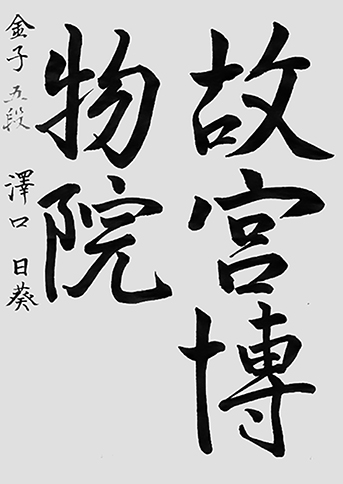 故宮博
物院
金子 五段 澤口 日葵